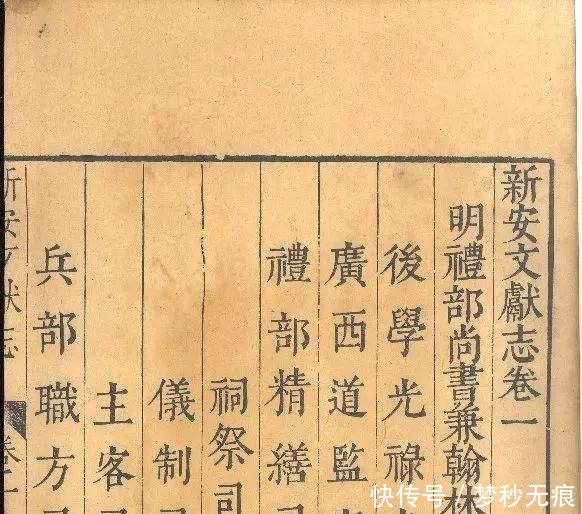 新安文獻志卷一
明禮部尚書兼翰林
後學光祿
廣西道監
禮部精繕
祠祭司
儀制
主客
兵部職方
新安文獻志
卷一
快传号/梦秒无痕